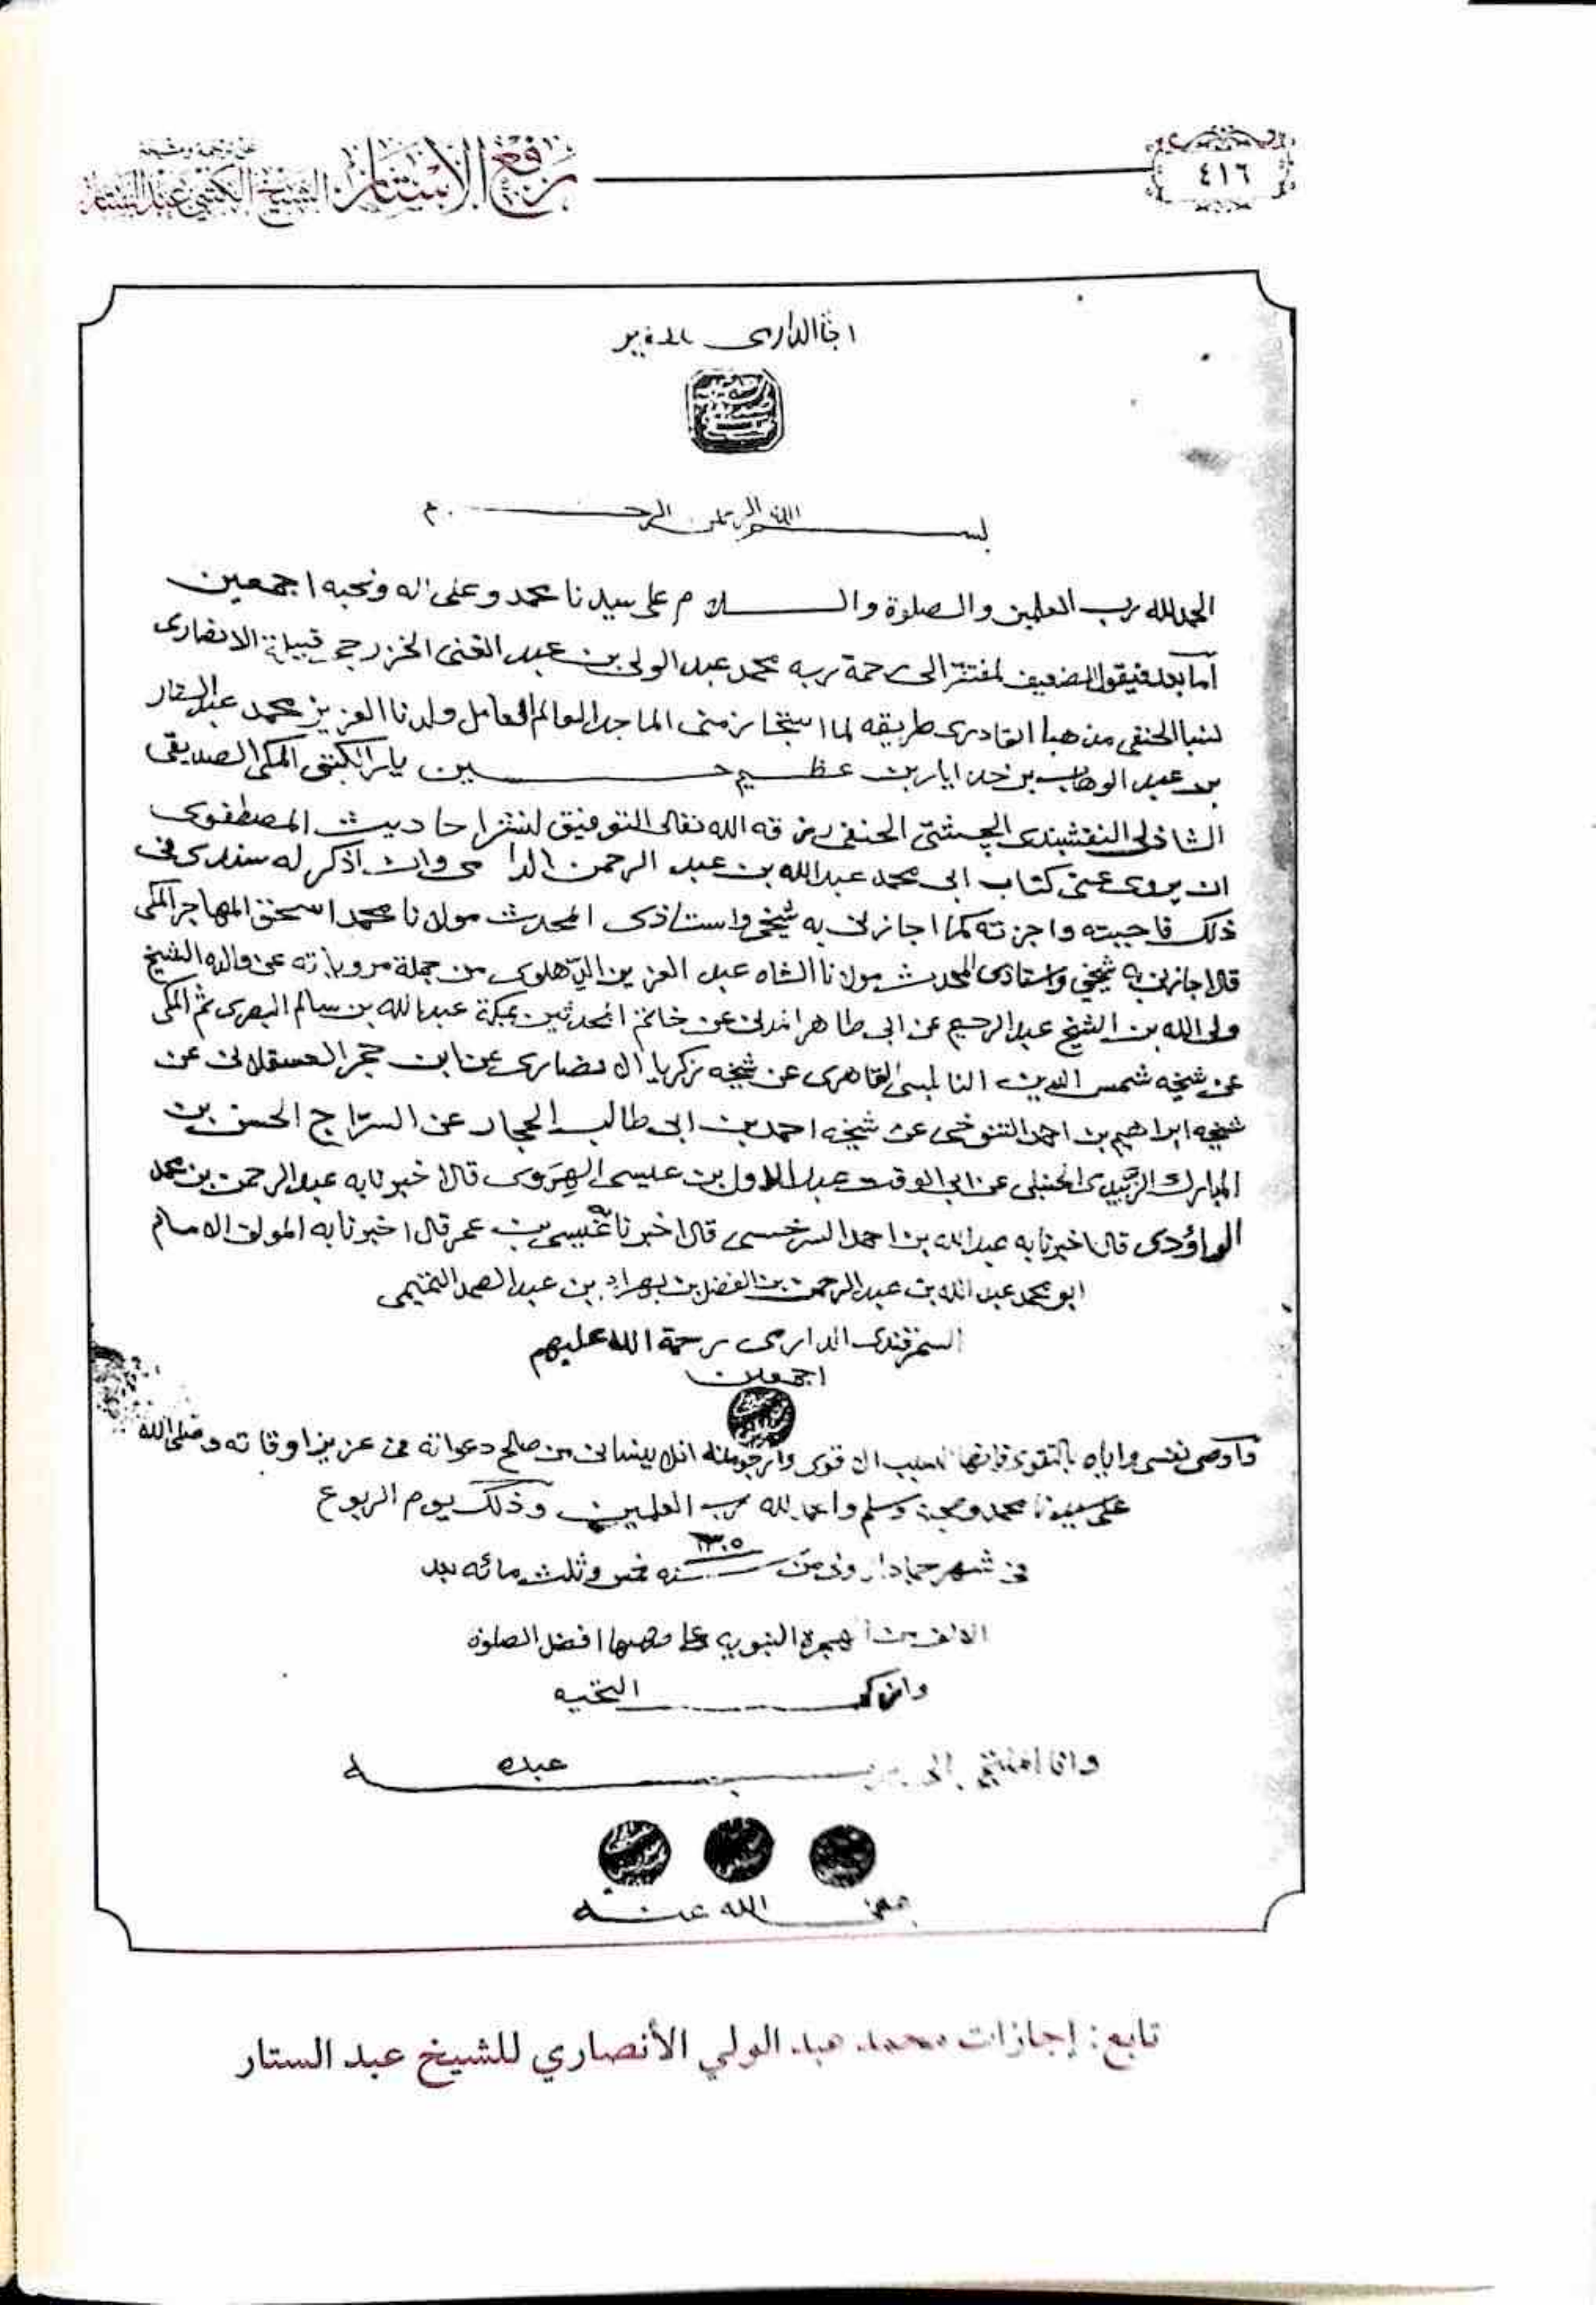 ٤١٦
رفع الأستار
عن ترجمة ومشيخة
الشيخ الكتبي عبد الستار
الدارمى
بســم الله الرحمن الرحـــيم
الحمد لله رب العلمين والصلوة والســلام على سيدنا محمد وعلى اله وصحبه اجمعين
اما بعد فيقول الضعيف المفتقر الى رحمة ربه محمد عبد الولى بن عبد الغنى الخزرجى قبيلة الانصارى
نسبا الحنفى مذهبا القادرى طريقه لما استجاز منى الماجد العالم العامل ولدنا العزيز محمد عبد الستار
بن عبد الوهاب بن خدايار بن عظيم حسـين يار الكتبى المكى الصديقى
الشاذلى النقشبندى الچشتى الحنفى رزقه الله تعالى التوفيق لنشر احاديث المصطفوى
ان يروى عنى كتاب ابى محمد عبد الله بن عبد الرحمن الدارمى وان اذكر له سندى فى
ذلك فاجبته واجزته كما اجازنى به شيخى واستاذى المحدث مولانا محمد اسحق المهاجر المكى
قال اجازنى به شيخى واستاذى المحدث مولانا الشاه عبد العزيز الدهلوى من جملة مروياته عن والده الشيخ
ولى الله بن الشيخ عبد الرحيم عن ابى طاهر المدنى عن خاتم المحدثين بمكة عبد الله بن سالم البصرى ثم المكى
عن شيخه شمس الدين البابلى القاهرى عن شيخه زكريا الانصارى عن ابن حجر العسقلانى عن
شيخه ابراهيم بن احمد التنوخى عن شيخه احمد بن ابى طالب الحجار عن السراج الحسن بن
المبارك الزبيدى الحنبلى عن ابى الوقت عبد الاول بن عيسى الهروى قال اخبرنا به عبد الرحمن بن محمد
الداؤدى قال اخبرنا به عبد الله بن احمد السرخسى قال اخبرنا به عيسى بن عمر قال اخبرنا به المولف الامام
ابو محمد عبد الله بن عبد الرحمن بن الفضل بن بهرام بن عبد الصمد التميمى
السمرقندى الدارمى رحمة الله عليهم
اجمعين
فاوصى نفسى واياه بالتقوى فانها السبب الاقوى وارجو منه ان لا ينسانى من صالح دعواته فى عزيز اوقاته وصلى الله
على سيدنا محمد وصحبه وسلم والحمد لله رب العلمين وذلك يوم الربوع
فى شهر جمادا ١٣٠٥ سنه خمس وثلث مائه بعد
الالف من الهجرة النبويه على افضل الصلوة
وازكـــى التحيه
وانا المفتقر الى عبده
عفى الله عنــه
تابع: إجازات محمد عبد الولي الأنصاري للشيخ عبد الستار